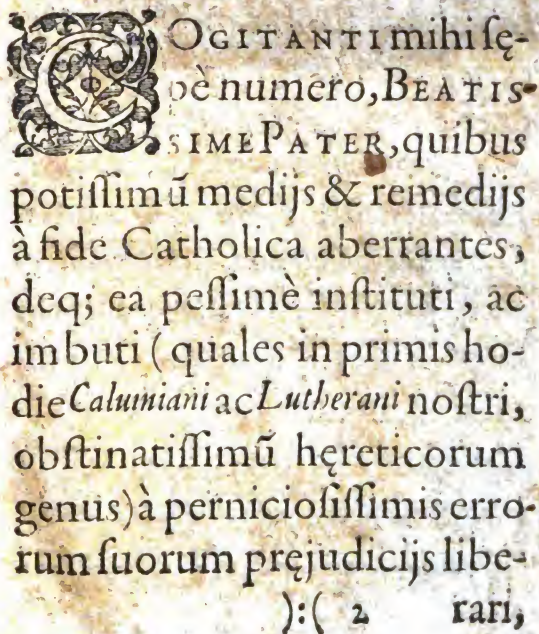 COGITANTI mihi sę-
pè numero, BEATIS-
SIME PATER, quibus
potissimũ medijs & remedijs
à fide Catholica aberrantes,
deq; ea pessimè instituti, ac
imbuti (quales in primis ho-
die Caluiniani ac Lutherani nostri,
obstinatissimũ hęreticorum
genus) à perniciosissimis erro-
rum suorum pręjudicijs libe-
):( 2 rari,